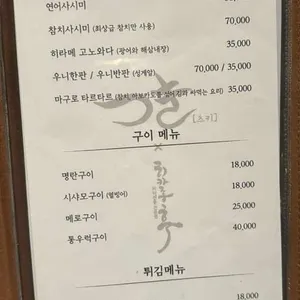 연어사시미
참치사시미 (최상급 참치만 사용) 70,000
히라메 고노와다 (광어와 해삼내장) 35,000
우니한판 / 우니반판 (성게알) 70,000 / 35,000
마구로 타르타르 (참치, 아보카도를 섞어김과 싸먹는 요리) 35,000
[츠키]
구이 메뉴
명란구이 18,000
시샤모구이 (열빙어) 18,000
메로구이 25,000
통우럭구이 40,000
튀김메뉴
18,000